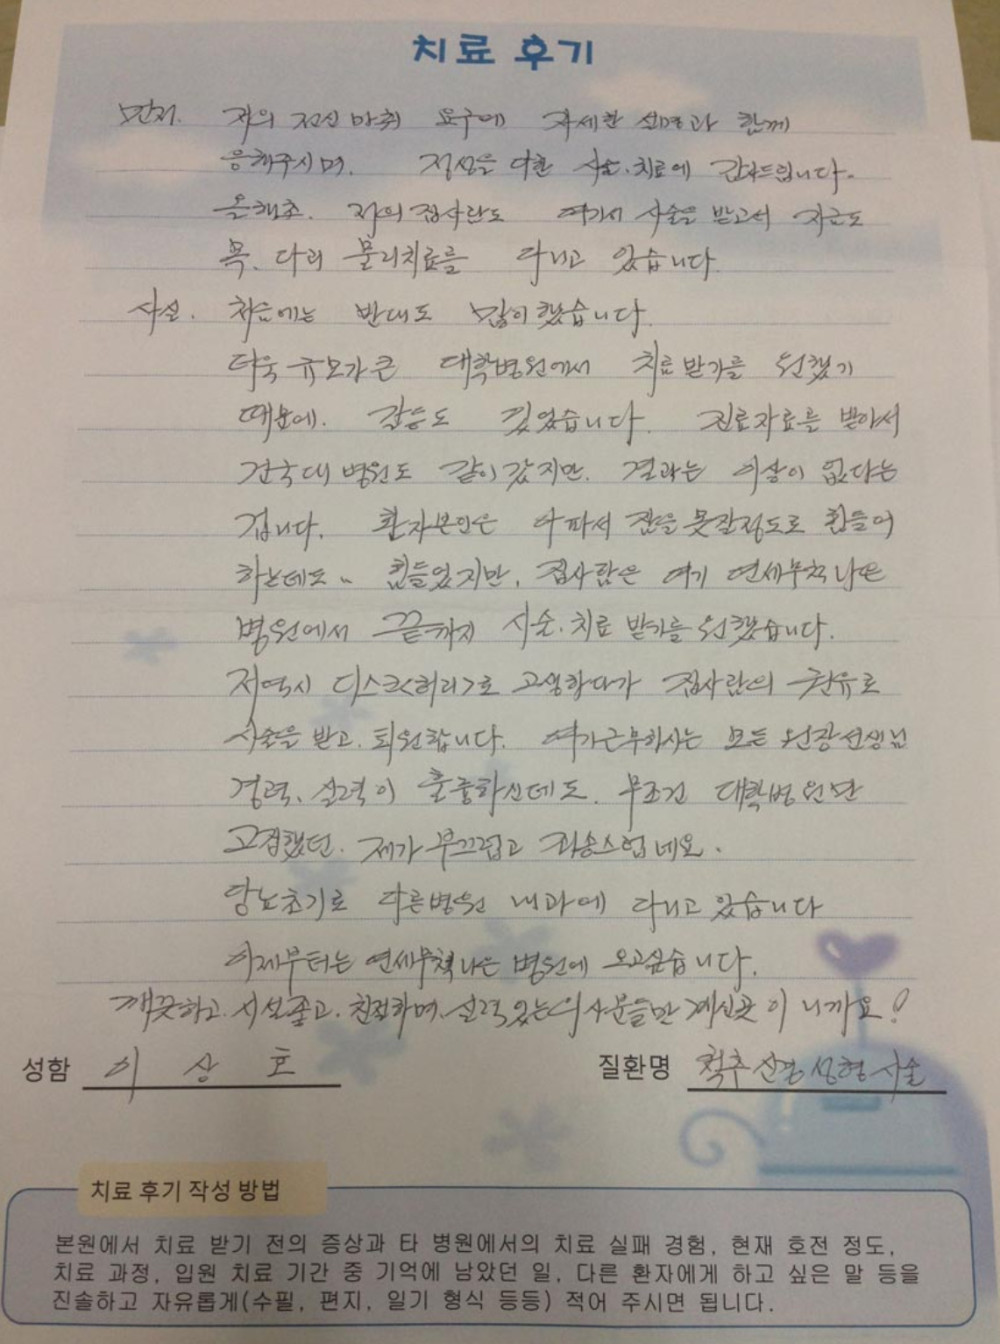 치료 후기
먼저. 저의 전신마취 요구에 자세한 설명과 함께
응해주시며. 정성을 다한 시술.치료에 감사드립니다.
올해초. 저의 집사람도 여기서 시술을 받고서 지금도
목. 다리 물리치료를 다니고 있습니다.
사실. 처음에는 반대도 많이 했습니다.
더욱 규모가 큰 대학병원에서 치료 받기를 원했기
때문에. 갈등도 있었습니다. 진료자료를 받아서
건국대 병원도 같이 갔지만. 결과는 이상이 없다는
겁니다. 환자본인은 아파서 잠을 못잘정도로 힘들어
하는데도.. 힘들었지만, 집사람은 여기 연세무척나은
병원에서 끝까지 시술.치료 받기를 원했습니다.
저역시 디스크<허리>로 고생하다가 집사람의 권유로
시술을 받고. 퇴원합니다. 여기근무하시는 모든 원장선생님
경력, 실력이 훌륭하신데도. 무조건 대학병원만
고집했던. 제가 부끄럽고 죄송스럽네요.
당뇨초기로 다른병원 내과에 다니고 있습니다
이제부터는 연세무척나은 병원에 오고싶습니다.
깨끗하고. 시설좋고. 친절하며. 실력있는 의사분들만 계신곳이니까요!
성함 이 상 호
질환명 척추신경성형시술
치료 후기 작성 방법
본원에서 치료 받기 전의 증상과 타 병원에서의 치료 실패 경험, 현재 호전 정도,
치료 과정, 입원 치료 기간 중 기억에 남았던 일, 다른 환자에게 하고 싶은 말 등을
진솔하고 자유롭게(수필, 편지, 일기 형식 등등) 적어 주시면 됩니다.